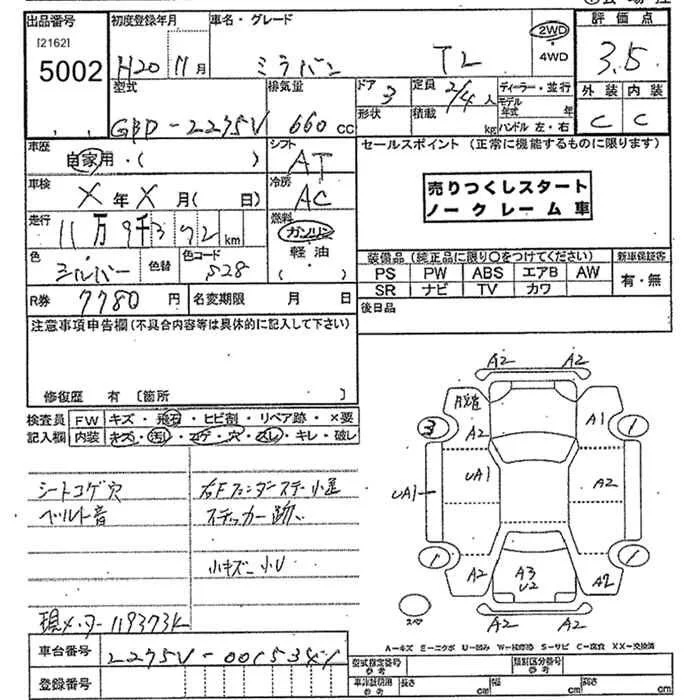 出品番号 初度登録年月 車名・グレード 評価点
[2162] 5002 H20 11月 ミラバン TL 2WD・4WD 3.5
型式 排気量 ドア 3 定員 2/4人 ディーラー・並行 外装 内装
GBD-L275V 660cc 形状 積載 kg モデル年式 年 ハンドル 左・右 C C
車歴 自家用・( ) シフト AT セールスポイント (正常に機能するものに限ります)
車検 X年X月( 日) 冷房 AC 売りつくしスタート
ノークレーム車
走行 11万9千372km 燃料 ガソリン
軽油
( )
色 シルバー 色替 色コード S28 装備品 (純正品に限り〇をつけてください) 新車保証書
PS PW ABS エアB AW 有・無
SR ナビ TV カワ
R券 7780円 名変期限 月 日 後日品
注意事項申告欄(不具合内容等は具体的に記入して下さい)
修復歴 有 [箇所 ]
検査員 FW キズ・飛石・ヒビ割・リペア跡・×要
記入欄 内装 キズ・汚・コゲ・穴・スレ・キレ・破レ
シートコゲ穴
ベルト音
右Fフェンダーステー小歪
ステッカー跡
小キズ小U
現メーター119373K
A2 A2
脱着 A1
3 A2 1
UA1 UA1 A2
1 1
A2 A3 A2
U2
スペア
A2 A2
A=キズ E=エクボ U=凹み W=補修跡 S=サビ C=腐食 XX=交換済
車台番号 L275V-0015341
登録番号
型式指定番号 参考 類別区分番号 参考
車排証使用 参考 長さ cm 幅 cm 高さ cm